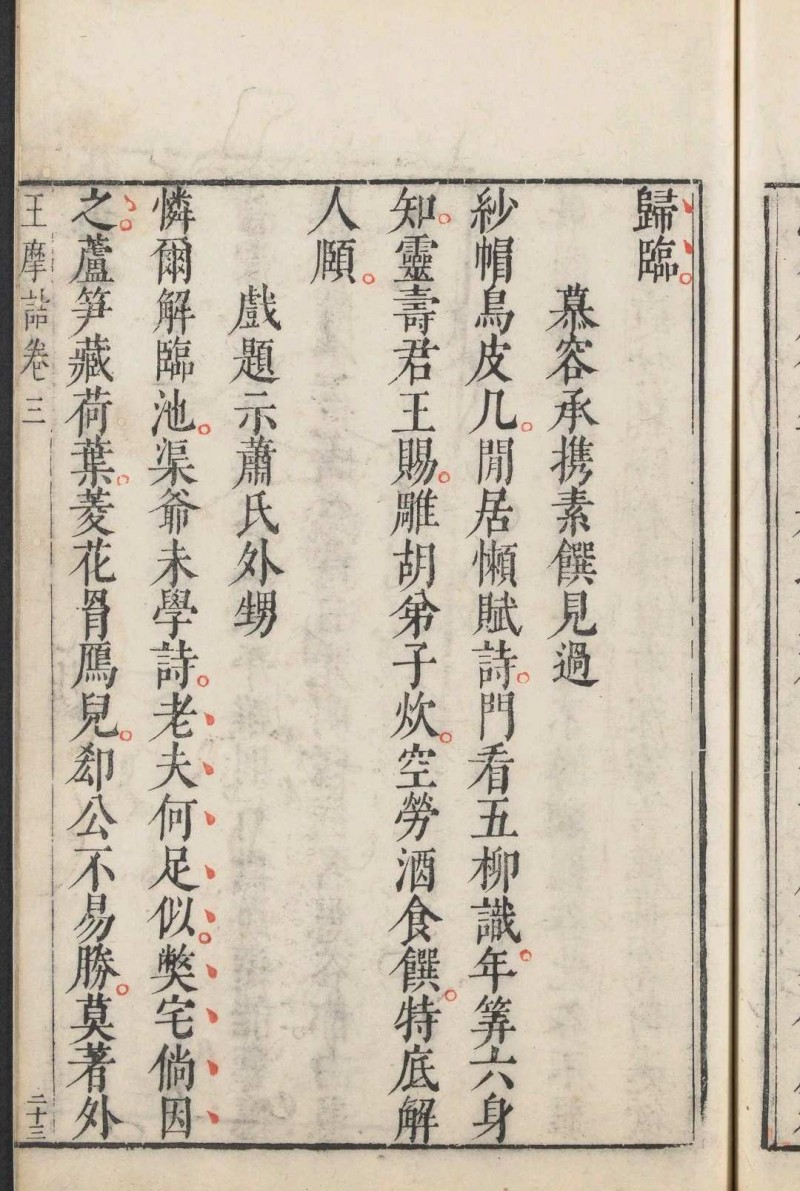 歸臨
慕容承携素饌見過
紗帽烏皮几閒居懶賦詩門看五柳識年筭六身
知靈壽君王賜雕胡弟子炊空勞酒食饌特底解
人頤
戲題示蕭氏外甥
憐爾解臨池渠爺未學詩老夫何足似獘宅倘因
之蘆笋藏荷葉菱花罥鴈兒郄公不易勝莫著外
王摩詰卷三
二十三